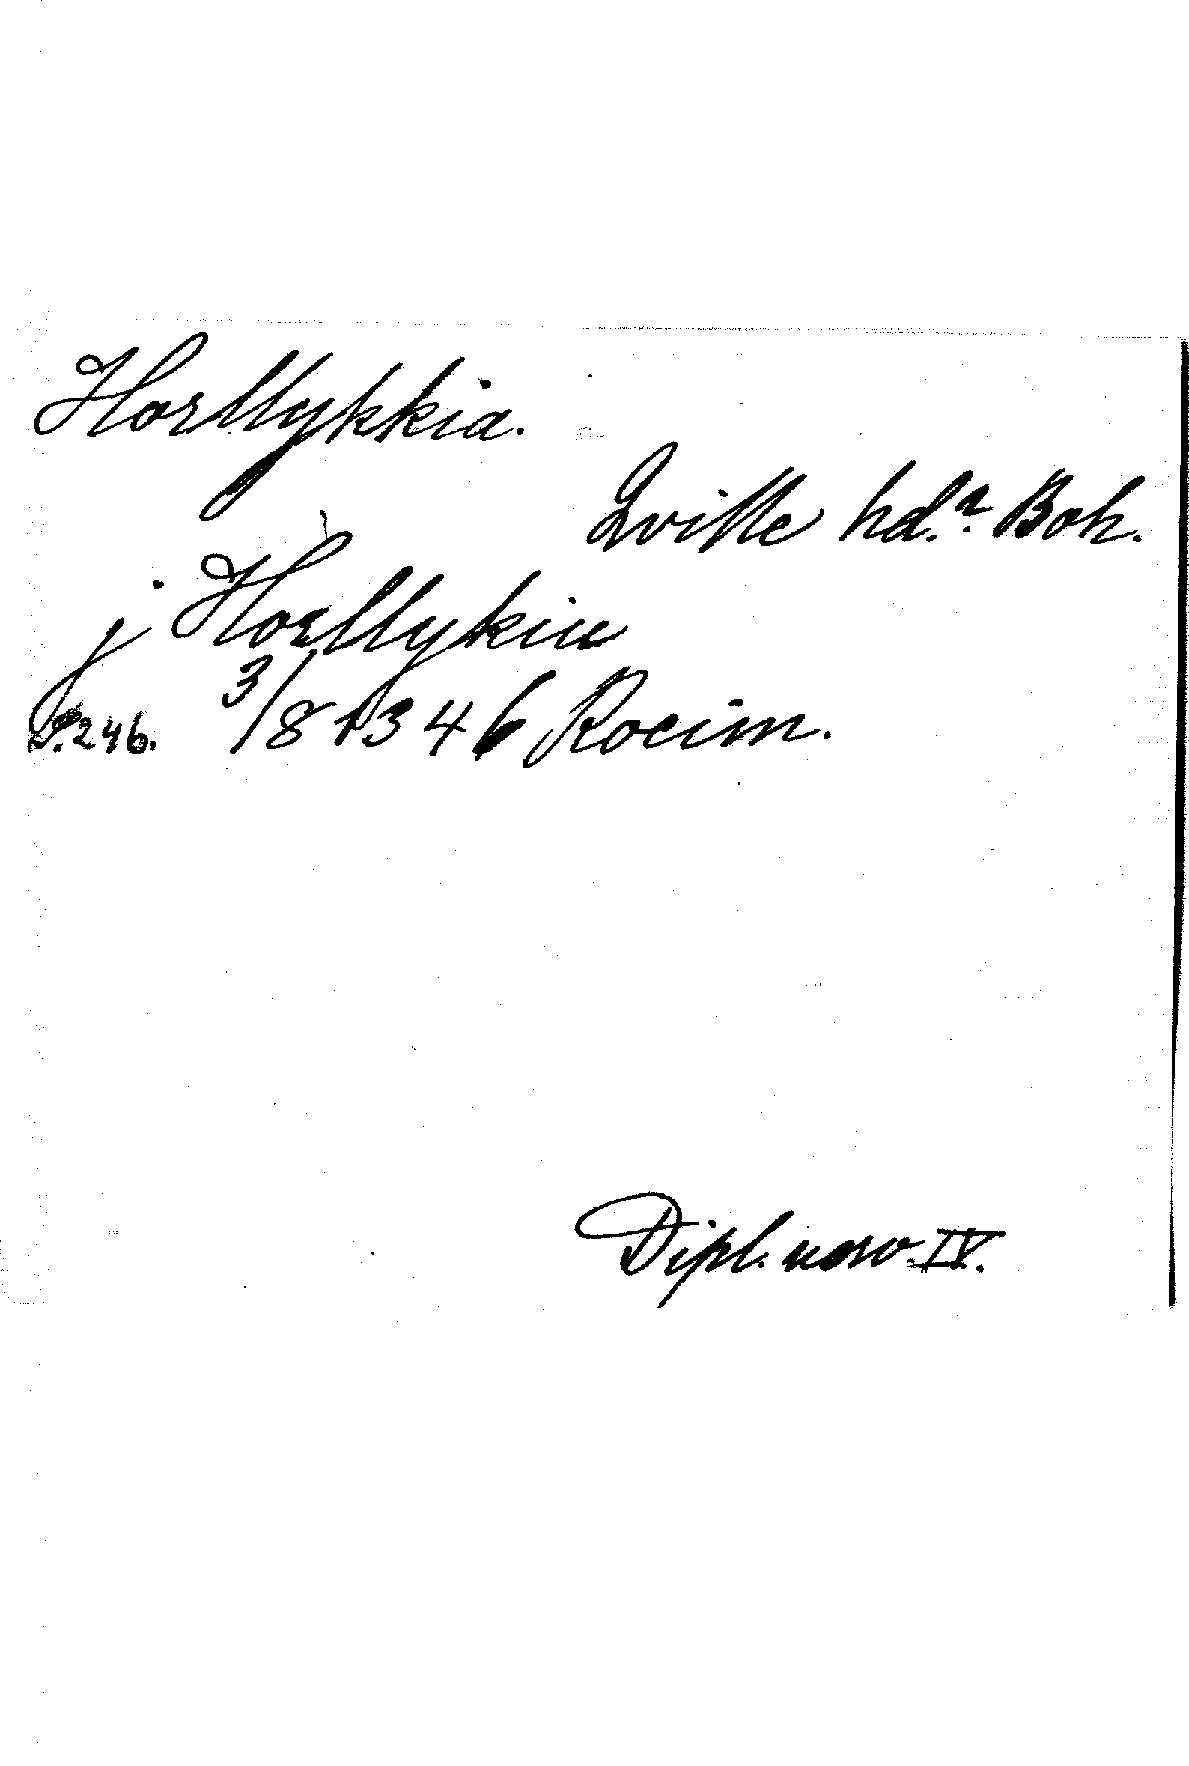 Horllykkia.
Qville hd.? Boh.
j Horllykiu
S. 246. 3/8 1346 Kocim.
Dipl. norv. IV.